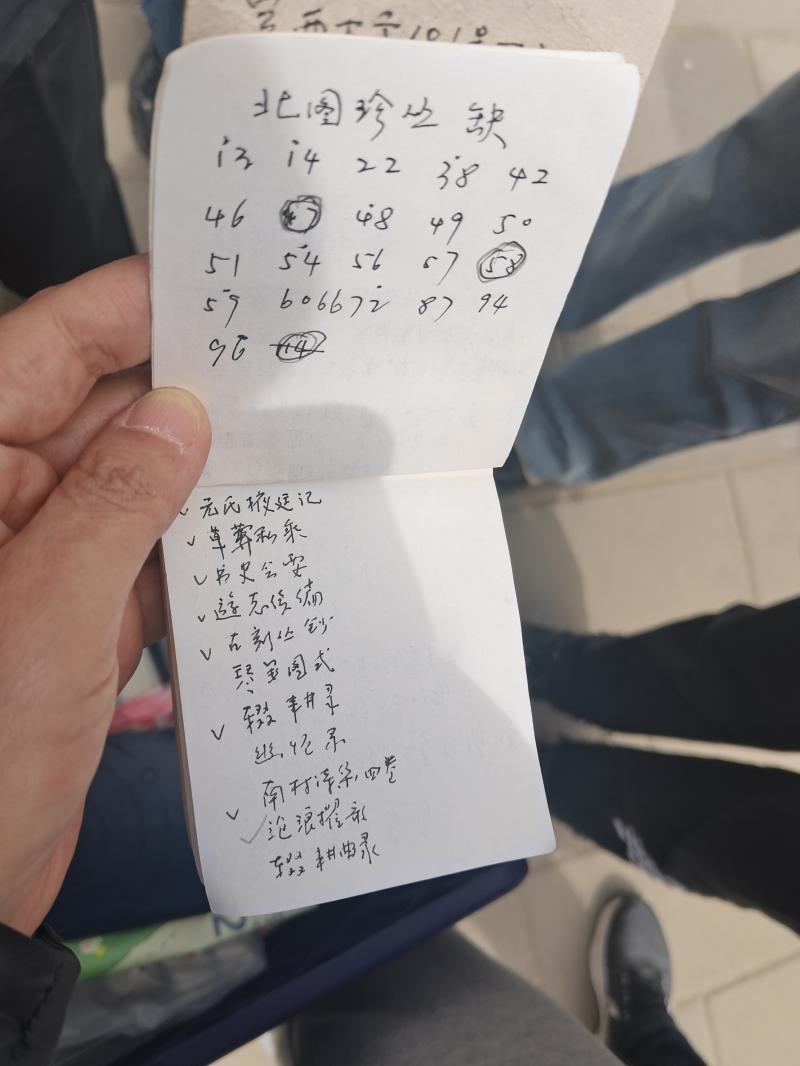 北图珍丛 缺
13 14 22 38 42
46 47 48 49 50
51 54 56 57 58
59 60 66 72 87 94
96 114
元氏掖廷记
草莽私乘
书史会要
遊志续编
古刻丛钞
琴笺图式
辍耕录
幽怪录
南村诗集四卷
沧浪擢歌
辍耕曲录